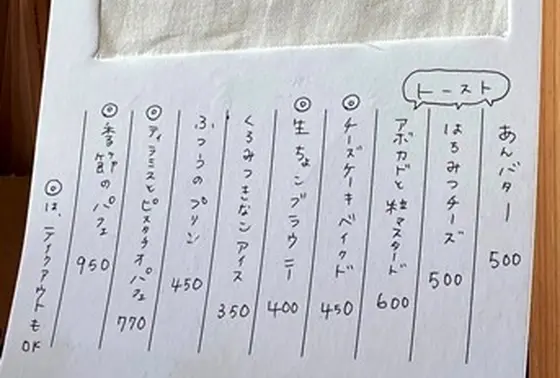 トースト
あんバター 500
はちみつチーズ 500
アボカドと粒マスタード 600
◎チーズケーキベイクド 450
◎生ちょこブラウニー 400
くろみつきなこアイス 350
ふつうのプリン 450
◎ティラミスとピスタチオパフェ 770
◎季節のパフェ 950
◎は、テイクアウトもOK